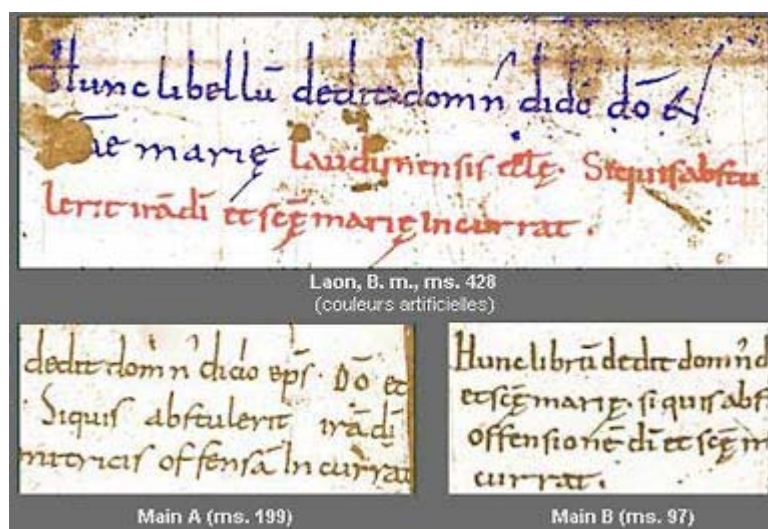 Hunc libellū dedit domn̄ dido dō et
āe marię laudunensis ecl̄ę. Siquis abstu
lerit irā dī et scę̄ marię Incurrat.
Laon, B. m., ms. 428
(couleurs artificielles)
dedit domn̄ dido ep̄s. Dō et
Siquis abstulerit irā dī
nitricis offensā Incurrat
Main A (ms. 199)
Hunc librū dedit domn̄ d
et scę̄ marię. siquis abst
offensionē dī et scę̄ m
currat.
Main B (ms. 97)